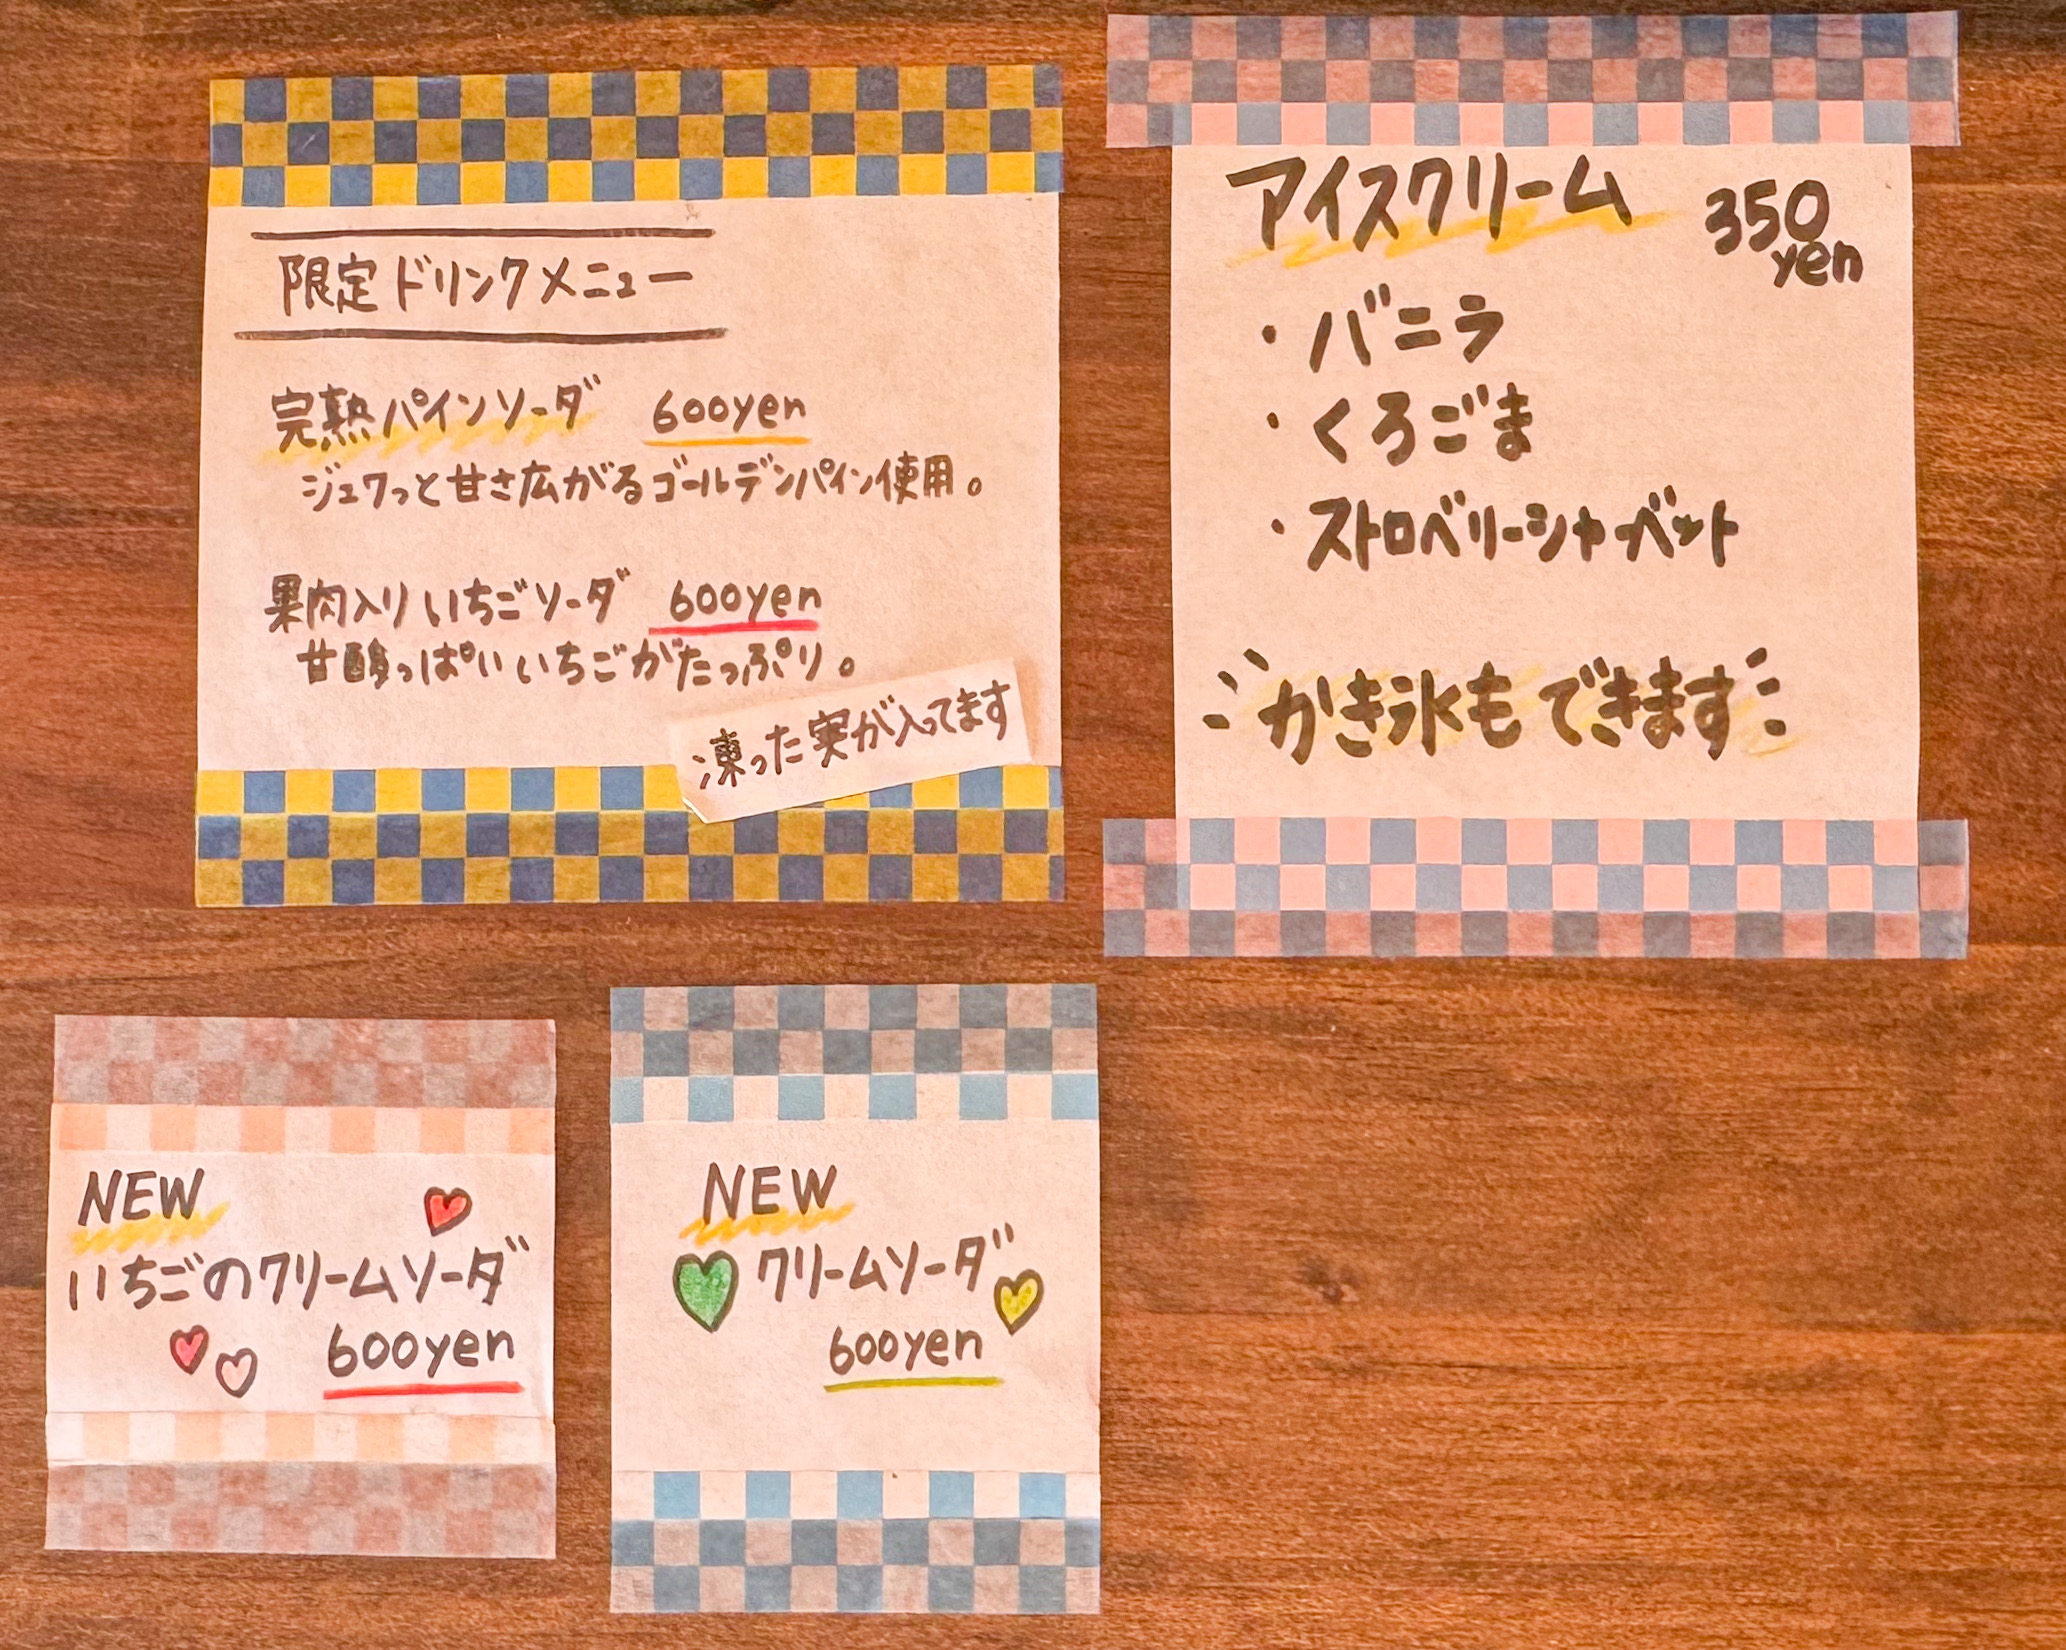 限定ドリンクメニュー
完熟パインソーダ 600yen
ジュワっと甘さ広がるゴールデンパイン使用。
果肉入りいちごソーダ 600yen
甘酸っぱいいちごがたっぷり。
凍った実が入ってます
アイスクリーム 350yen
・バニラ
・くろごま
・ストロベリーシャーベット
かき氷もできます
NEW
いちごのクリームソーダ
600yen
NEW
クリームソーダ
600yen